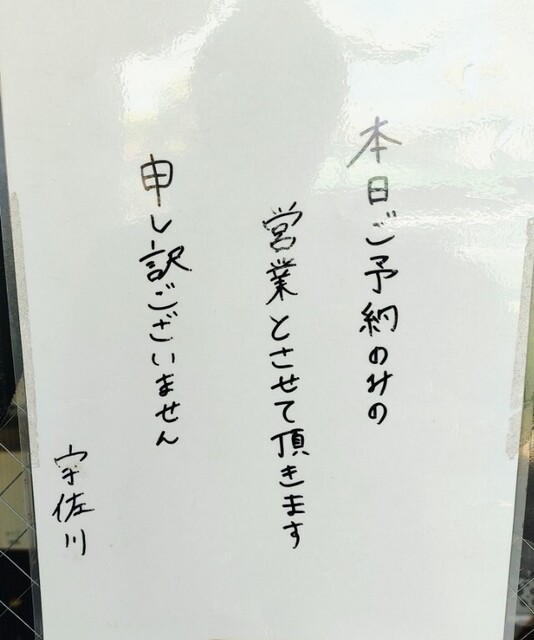 本日ご予約のみの
営業とさせて頂きます
申し訳ございません
宇佐川